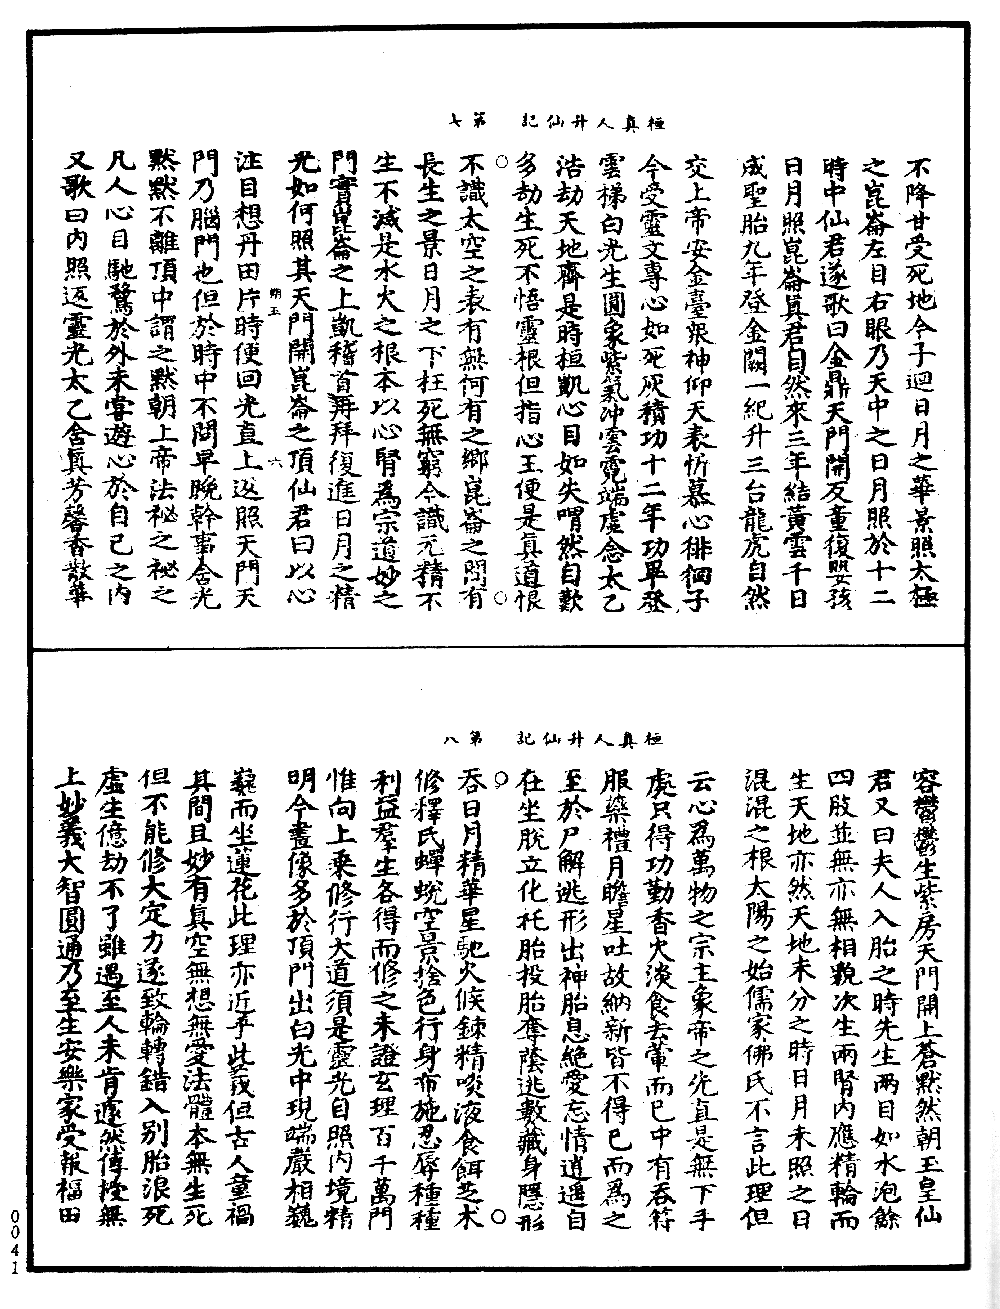 桓真人升仙記　第七
不降甘受死地今子迴日月之華景照太極
之崑崙左目右眼乃天中之日月照於十二
時中仙君遂歌曰金鼎天門開反童復嬰孩
日月照崑崙真君自然來三年結黃雲千日
成聖胎九年登金闕一紀升三台龍虎自然
交上帝安金臺眾神仰天表忻慕心徘徊子
今受靈文專心如死灰積功十二年功畢登
雲梯白光生圓象紫氣沖雲霓端虛念太乙
浩劫天地齊是時桓凱心目如失喟然自歎
多劫生死不悟靈根但指心王便是真道恨
不識太空之表有無何有之鄉崑崙之間有
長生之景日月之下枉死無窮今識元精不
生不滅是水火之根本以心腎為宗道妙之
門實崑崙之上凱稽首再拜復進日月之精
光如何照其天門開崑崙之頂仙君曰以心
六
注目想丹田片時便回光直上返照天門天
門乃腦門也但於時中不問早晚幹事舍光
默默不離頂中謂之默朝上帝法祕之祕之
凡人心目馳騖於外未嘗遊心於自己之內
又歌曰內照返靈光太乙含真芳馨香散華
桓真人升仙記　第八
容鬱鬱生紫房天門開上蒼默然朝玉皇仙
君又曰夫人入胎之時先生兩目如水泡餘
四肢並無亦無相貌次生兩腎內應精輪而
生天地亦然天地未分之時日月未照之日
混混之根太陽之始儒家佛氏不言此理但
云心為萬物之宗主象帝之先直是無下手
處只得功勤香火淡食去葷而已中有吞符
服藥禮月瞻星吐故納新皆不得已而為之
至於尸解逃形出神胎息絕愛忘情逍遙自
在坐脫立化托胎投胎奪蔭逃數藏身隱形
吞日月精華星馳火候鍊精啖液食餌芝朮
修釋氏蟬蛻空景捨色行身布施忍辱種種
利益羣生各得而修之未證玄理百千萬門
惟向上乘修行大道須是靈光自照內境精
明今畫像多於頂門出白光中現端嚴相巍
巍而坐蓮花此理亦近乎此義但古人童禍
其間且妙有真空無想無愛法體本無生死
但不能修大定力遂致輪轉錯入別胎浪死
虛生億劫不了雖遇至人未肯遽然傳授無
上妙義大智圓通乃至生安樂家受報福田
0041